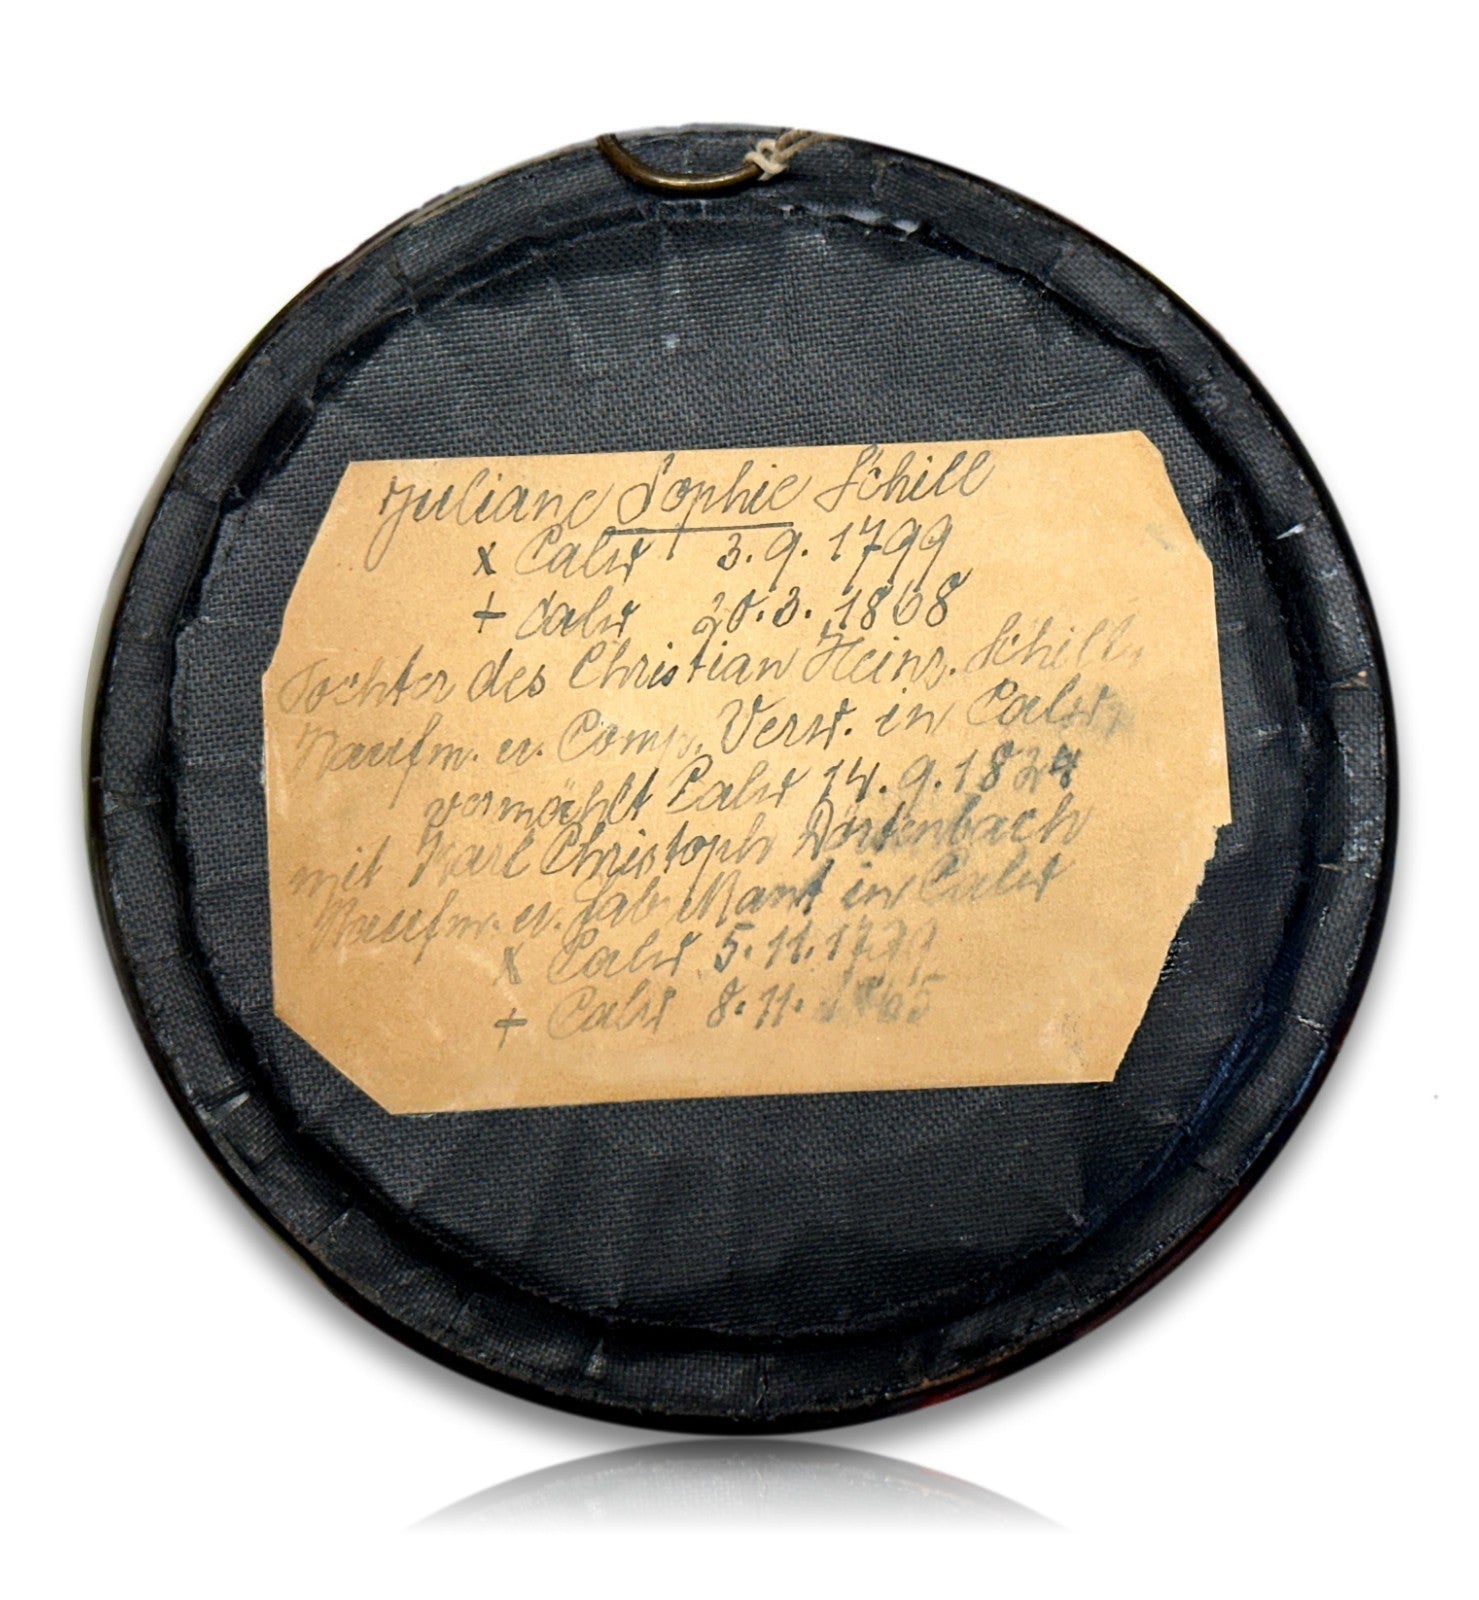 Juliane Sophie Schill
x Calw 3.9.1799
+ Calw 20.3.1868
Tochter des Christian Heinr. Schill,
Kaufm. u. Comp. Verw. in Calw
vermählt Calw 14.9.1824
mit Karl Christoph Dörtenbach
Kaufm. u. Fabrikant in Calw
x Calw 5.11.1779
+ Calw 8.11.1865